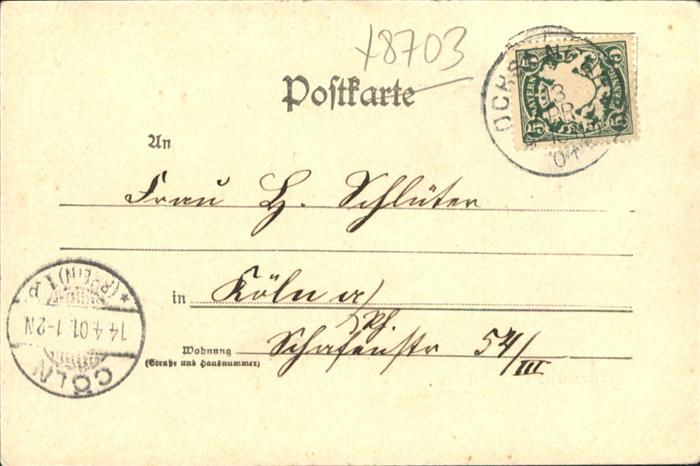 18703
Postkarte
OCHSEN
13
APR
01
BAYERN
5 5
5 5
An
Frau H. Schlüter
in Köln a/
Rh.
Wohnung
(Straße und Hausnummer)
Schafenstr 54/III
* (RHEIN) 1 P
14.4.01.1-2N
CÖLN